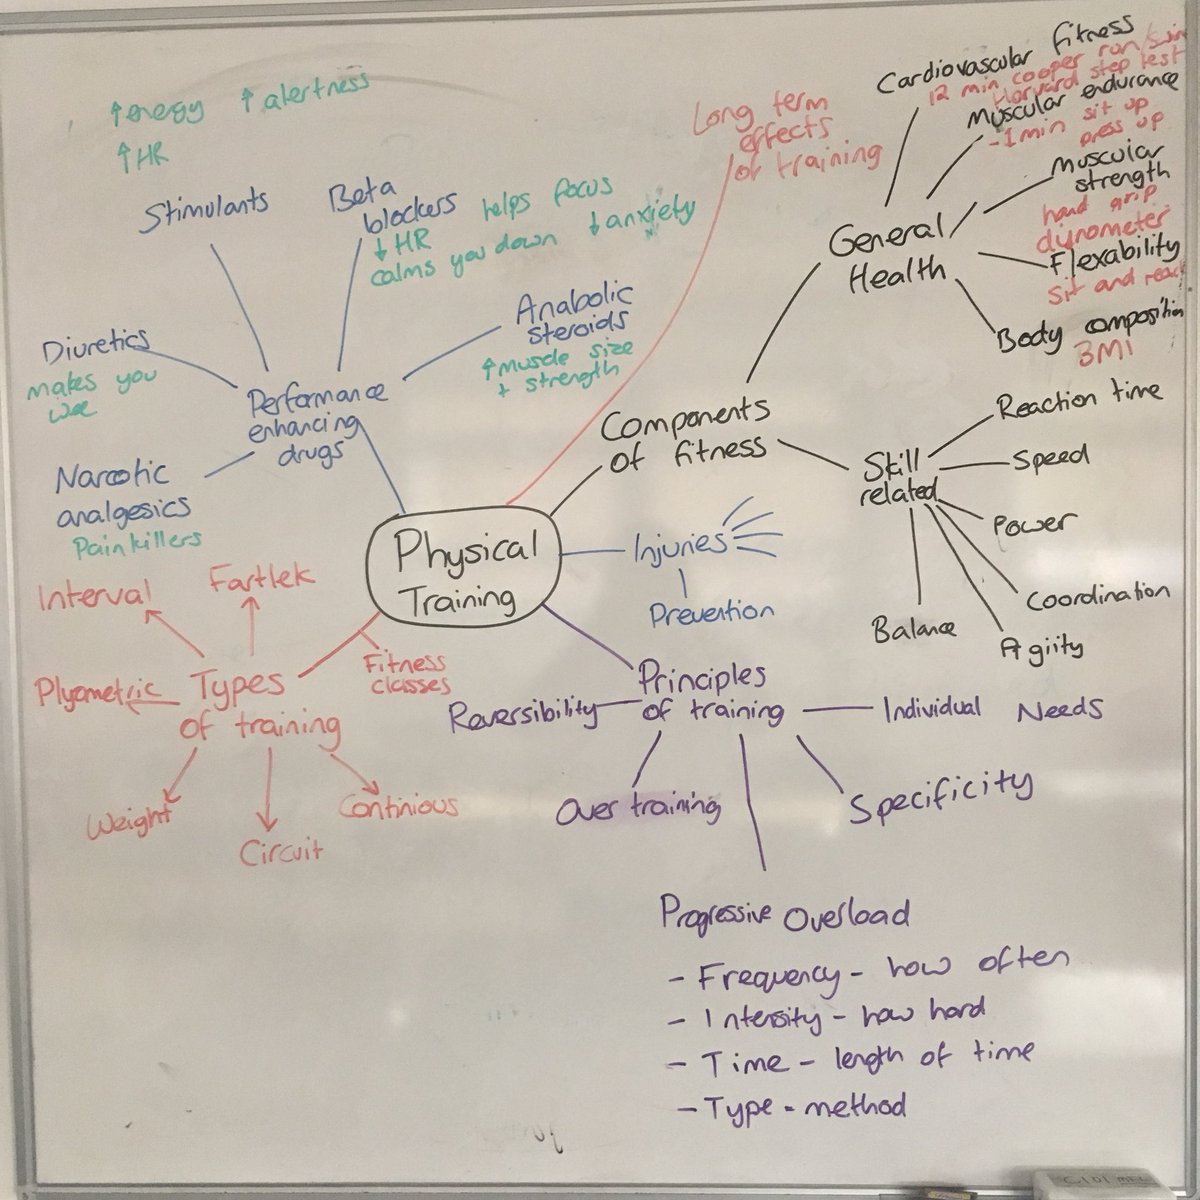 ↑energy ↑ alertness
↑HR
Stimulants
Beta
blockers helps focus
↓HR
calms you down ↓anxiety
Anabolic
steroids
↑muscle size
+ strength
Diuretics
makes you
wee
Performance
enhancing
drugs
Narcotic
analgesics
Painkillers
Long term
effects
of training
Cardiovascular fitness
12 min cooper run/swim
Harvard step test
Muscular endurance
-1min sit up
press up
Muscular
strength
hand grip
dynometer
Flexability
sit and reach
Body composition
BMI
General
Health
Components
of fitness
Skill
related
Reaction time
Speed
Power
Coordination
Agiity
Balance
Physical
Training
Injuries
Prevention
Interval
Fartlek
Plyometric
Types
of training
Fitness
classes
Weight
Circuit
Continious
Principles
of training
Reversibility
Individual Needs
Over training
Specificity
Progressive Overload
- Frequency - how often
- Intensity - how hard
- Time - length of time
- Type - method